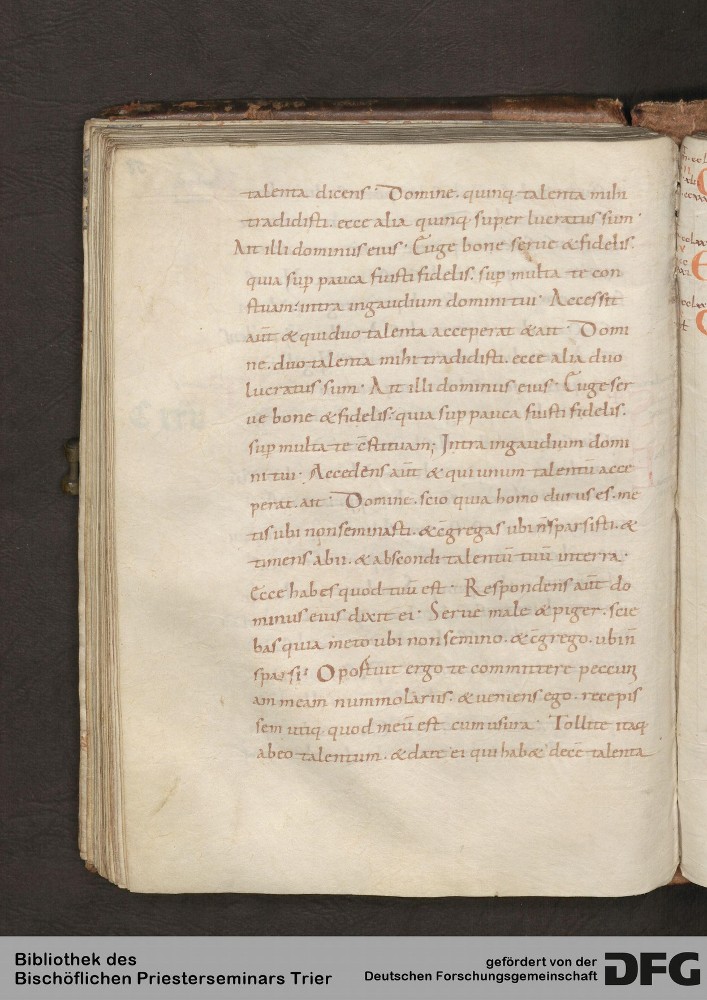 talenta dicens. Domine. quinq; talenta mihi
tradidisti. ecce alia quinq; super lucratus sum.
Ait illi dominus eius. Euge bone serue & fidelis.
quia sup pauca fuisti fidelis. sup multa te con
stituam. intra ingaudium domini tui. Accessit
aut̄ & quiduo talenta acceperat & ait. Domi
ne. duo talenta mihi tradidisti. ecce alia duo
lucratus sum. Ait illi dominus eius. Euge ser
ue bone & fidelis. quia sup pauca fuisti fidelis.
sup multa te c̄stituam; Intra ingaudium domi
ni tui. Accedens aut̄ & qui unum talentū acce
perat. ait. Domine. scio quia homo durus es. me
tis ubi nonseminasti. & c̄gregas ubi n̄ sparsisti. &
timens abii. & abscondi talentū tuū interra.
Ecce habes quod tuū est. Respondens aut̄ do
minus eius dixit ei. Serue male & piger. scie
bas quia meto ubi non semino. & c̄grego. ubi n̄
sparsi. Oportuit ergo te committere peccun
am meam nummolariis. & ueniens ego. recepis
sem utiq; quod meū est cum usura. Tollite itaq;
abeo talentum. & date ei qui hab& decē talenta
Bibliothek des
Bischöflichen Priesterseminars Trier
gefördert von der
Deutschen Forschungsgemeinschaft
DFG